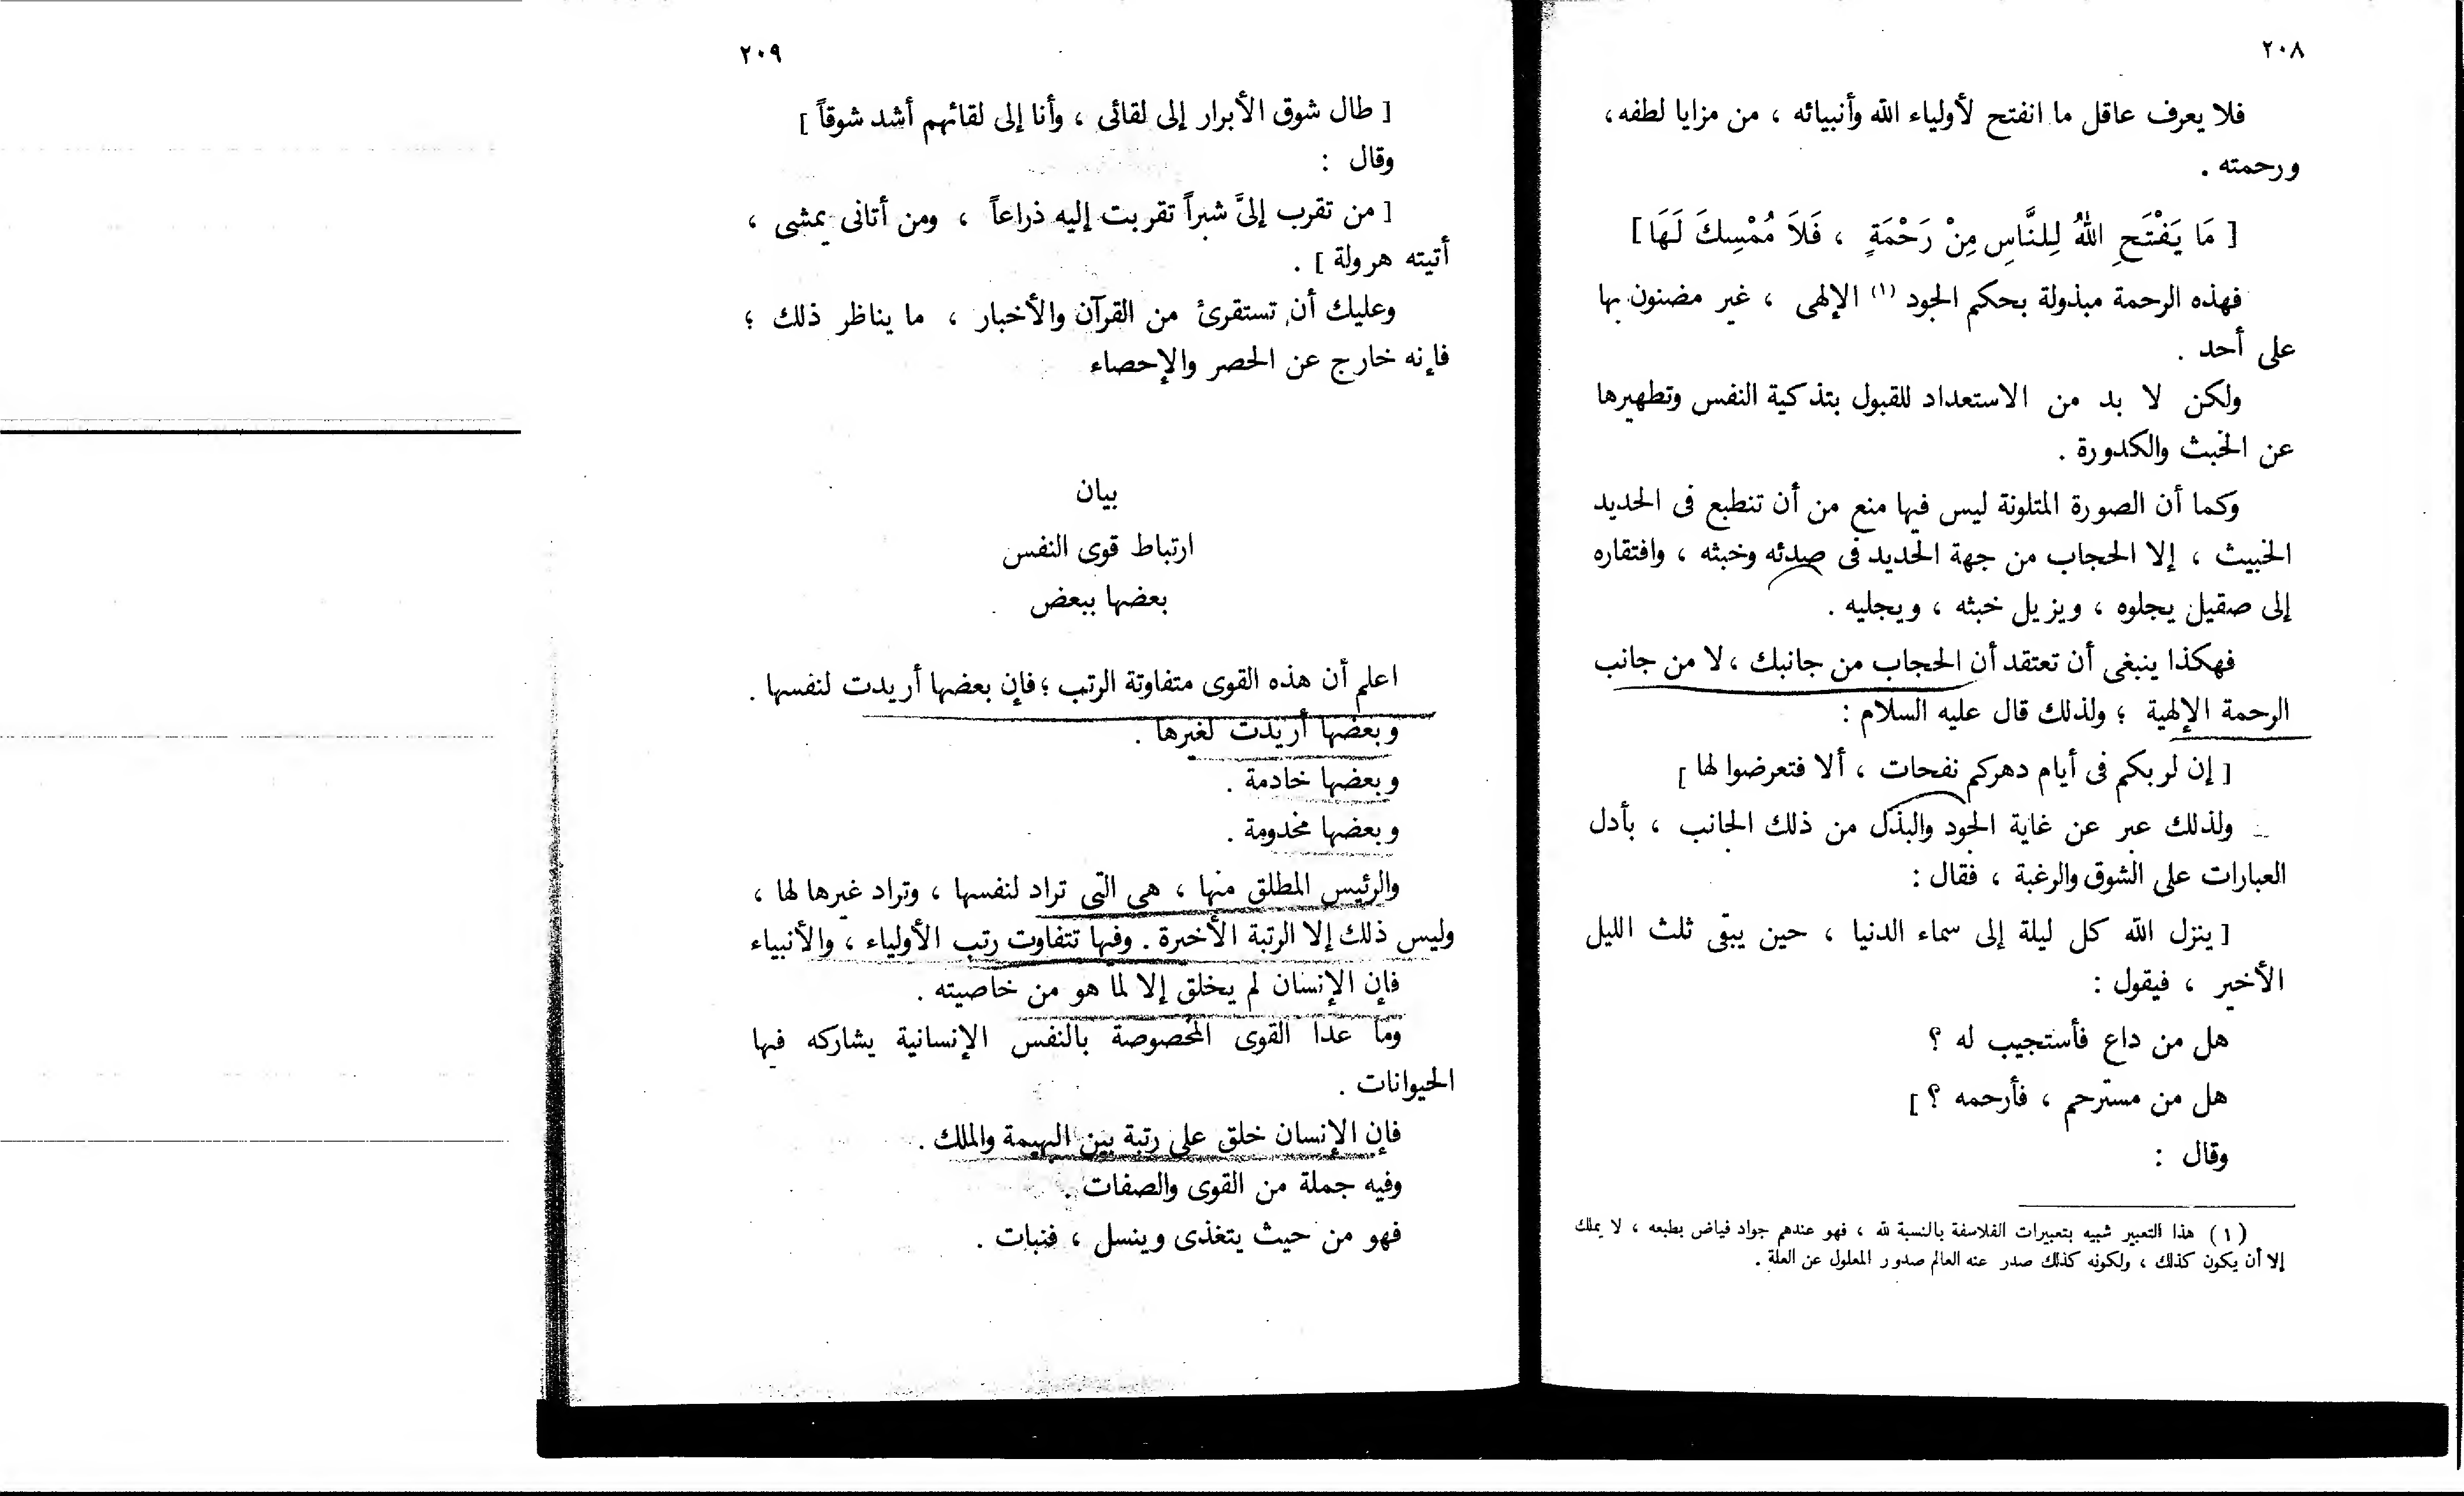 ٢٠٨
فلا يعرف عاقل ما انفتح لأولياء الله وأنبيائه ، من مزايا لطفه ،
ورحمته .
[ مَا يَفْتَحِ اللهُ لِلنَّاسِ مِنْ رَحْمَةٍ ، فَلاَ مُمْسِكَ لَهَا ]
فهذه الرحمة مبذولة بحكم الجود (١) الإلهى ، غير مضنون بها
على أحد .
ولكن لا بد من الاستعداد للقبول بتذكية النفس وتطهيرها
عن الخبث والكدورة .
وكما أن الصورة المتلونة ليس فيها منع من أن تنطبع فى الحديد
الخبيث ، إلا الحجاب من جهة الحديد فى صدئه وخبثه ، وافتقاره
إلى صقيل يجلوه ، ويزيل خبثه ، ويجليه .
فهكذا ينبغى أن تعتقد أن الحجاب من جانبك ، لا من جانب
الرحمة الإلهية ؛ ولذلك قال عليه السلام :
[ إن لربكم فى أيام دهركم نفحات ، ألا فتعرضوا لها ]
ولذلك عبر عن غاية الجود والبذل من ذلك الجانب ، بأدل
العبارات على الشوق والرغبة ، فقال :
[ ينزل الله كل ليلة إلى سماء الدنيا ، حين يبقى ثلث الليل
الأخير ، فيقول :
هل من داع فأستجيب له ؟
هل من مسترحم ، فأرحمه ؟ ]
وقال :
( ١ ) هذا التعبير شبيه بتعبيرات الفلاسفة بالنسبة لله ، فهو عندهم جواد فياض بطبعه ، لا يملك
إلا أن يكون كذلك ، ولكونه كذلك صدر عنه العالم صدور المعلول عن العلة .
٢٠٩
[ طال شوق الأبرار إلى لقائى ، وأنا إلى لقائهم أشد شوقاً ]
وقال :
[ من تقرب إلىَّ شبراً تقربت إليه ذراعاً ، ومن أتانى يمشى ،
أتيته هرولة ] .
وعليك أن تستقرئ من القرآن والأخبار ، ما يناظر ذلك ؛
فإنه خارج عن الحصر والإحصاء
بيان
ارتباط قوى النفس
بعضها ببعض
اعلم أن هذه القوى متفاوتة الرتب ؛ فإن بعضها أريدت لنفسها .
وبعضها أريدت لغيرها .
وبعضها خادمة .
وبعضها مخدومة .
والرئيس المطلق منها ، هى التى تراد لنفسها ، وتراد غيرها لها ،
وليس ذلك إلا الرتبة الأخيرة . وفيها تتفاوت رتب الأولياء ، والأنبياء
فإن الإنسان لم يخلق إلا لما هو من خاصيته .
وما عدا القوى المخصوصة بالنفس الإنسانية يشاركه فيها
الحيوانات .
فإن الإنسان خلق على رتبة بين البهيمة والملك .
وفيه جملة من القوى والصفات .
فهو من حيث يتغذى وينسل ، فنبات .